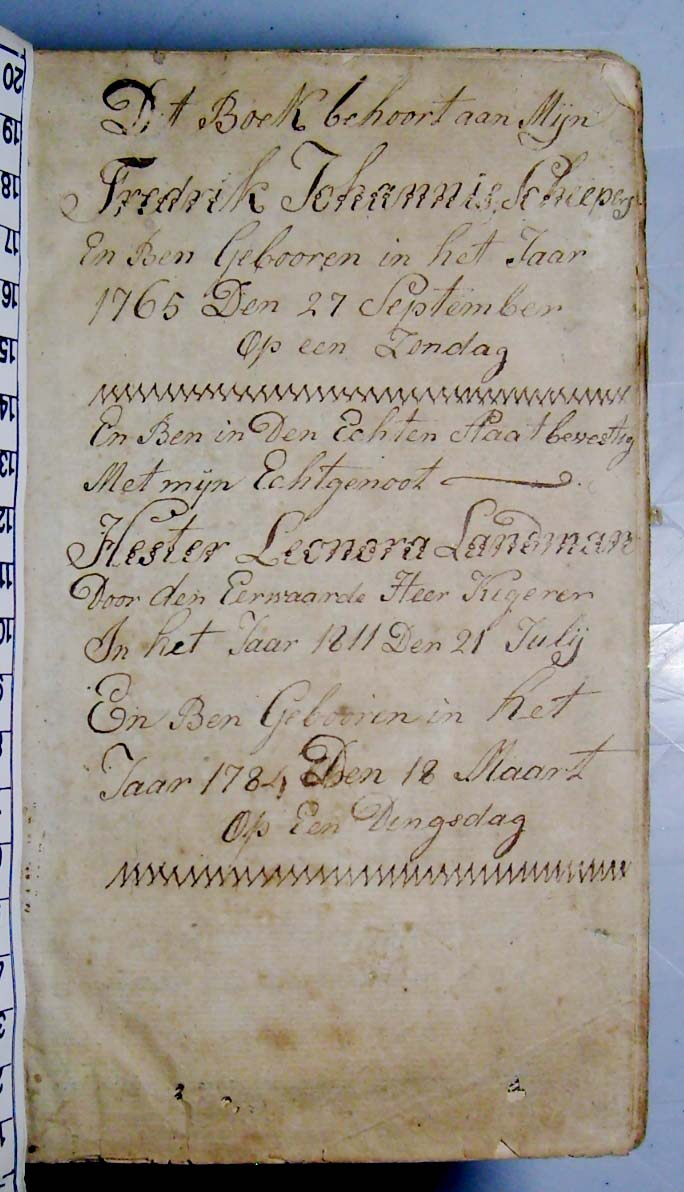 Dit Boek behoort aan Mijn
Fredrik Johannis Scheepers
En Ben Gebooren in het Jaar
1765 Den 27 September
Op een Zondag
En Ben in Den Echten Staat bevestig
Met mijn Echtgenoot
Hester Leonora Landman
Door den Eerwaarde Heer Kigerer
In het Jaar 1811 Den 21 Julij
En Ben Gebooren in het
Jaar 1784 Den 18 Maart
Op Een Dingsdag
20
19
18
17
16
15
14
13
12
11
10